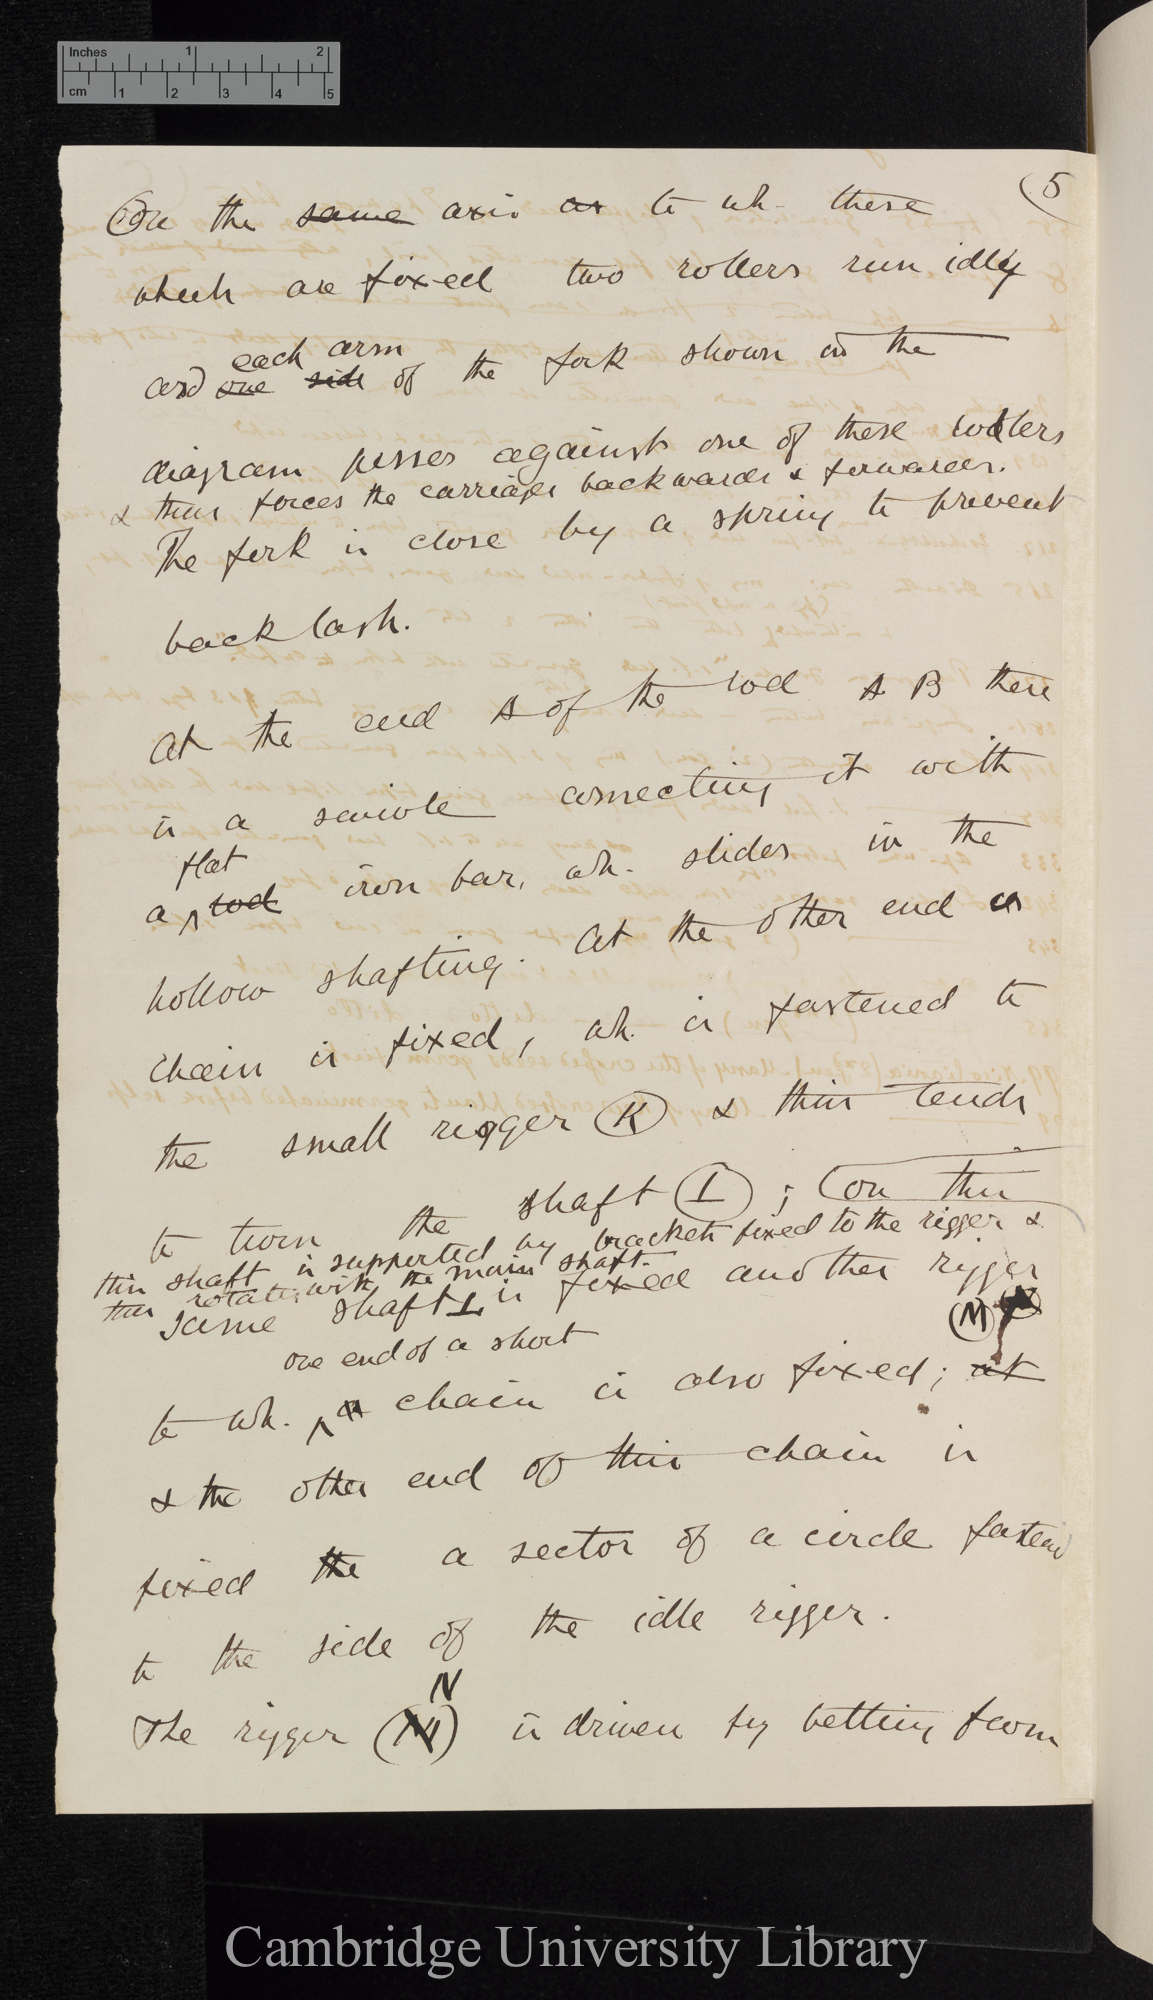 Inches 1 2
cm 1 2 3 4 5
(5
On the same axis as to wh. these
wheels are fixed two rollers run idly
each arm
and one side of the fork shown in the
diagram presses against one of these rollers
& thus forces the carriages backwards & forwards.
The fork is close by a spring to prevent
backlash.
At the end A of the rod A B there
is a swivle connecting it with
flat
a rod iron bar, wh. slides in the
hollow shafting. At the other end a
chain is fixed, wh. is fastened to
the small rigger (K) & thus tends
to turn the shaft (L); (on this
this shaft is supported by brackets fixed to the rigger &
thus rotates with the main shaft.
same shaft L is fixed another rigger
(M)
one end of a short
to wh. a chain is also fixed; at
& the other end of this chain is
fixed the a sector of a circle
to the side of the idle rigger.
N
The rigger (M) is driven by belting from
Cambridge University Library